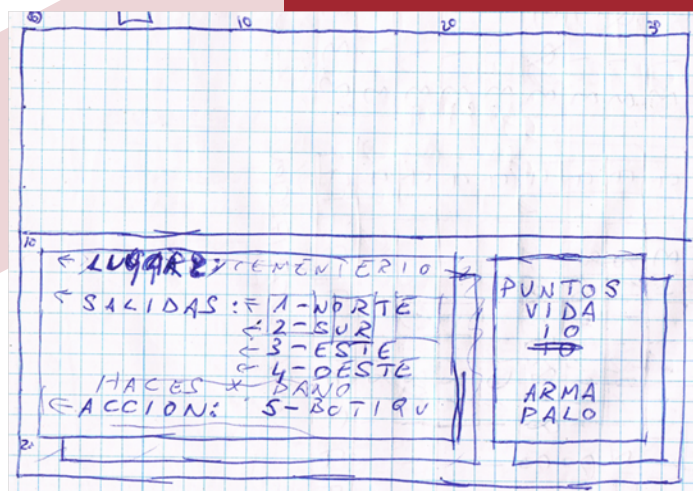 0 10 20 30
10
LUGAR: CEMENTERIO
SALIDAS: 1-NORTE
2-SUR
3-ESTE
4-OESTE
HACES X DAÑO
ACCION: 5-BOTIQU
PUNTOS
VIDA
10
10
ARMA
PALO